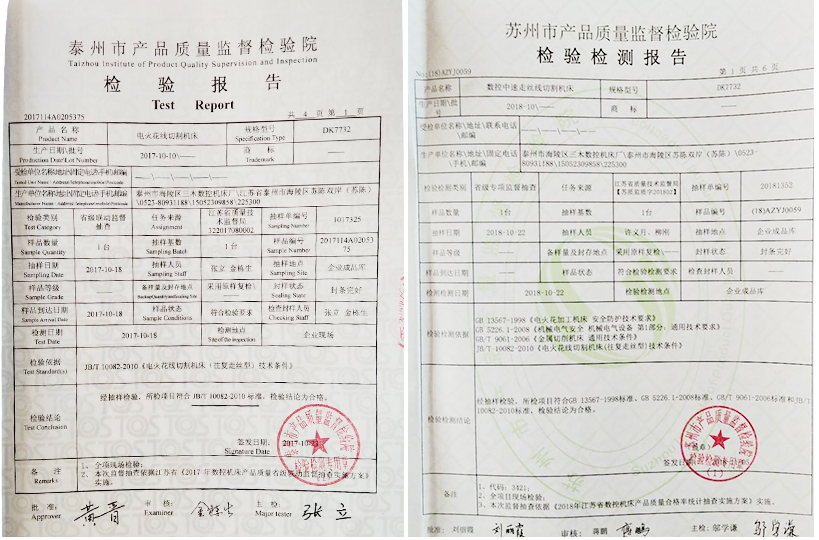 泰州市产品质量监督检验院
Taizhou Institute of Product Quality Supervision and Inspection
检 验 报 告
Test Report
2017114A0205375
共 4 页 第 1 页
产 品 名 称 电火花线切割机床 规格型号 DK7732
Product Name Specification Type
生产日期\批号 2017-10-10\—— 商 标 ——
Production Date\Lot Number Trademark
受检单位名称\地址\固定电话\手机\邮编 —\—\—\—\—
生产单位名称\地址\固定电话\手机\邮编 泰州市海陵区三木数控机床厂\江苏省泰州市海陵区苏陈双岸（苏陈）
\0523-80931188\15052309858\225300
检验类别 省级联动监督抽查 任务来源 江苏省质量技术监督局322017080002 抽样单编号 1017325
Test Category Assignment Sampling Number
样品数量 1台 抽样基数 1台 样品编号 2017114A0205375
Sample Quantity Sampling Batch Sample Number
抽样日期 2017-10-18 抽样人员 张立 金栋生 抽样地点 企业成品库
Sampling Date Sampling Staff Sampling Site
样品等级 —— 备样量及封存地点 采用原样复检\ 封样状态 封条完好
Sample Grade Sealing State
样品到达日期 2017-10-18 样品状态 符合检验要求 检查封样人员 张立 金栋生
Sample Arrival Date Sample Conditions Checking Staff
检测日期 2017-10-18 检测地点 企业现场
Test Date Site of the inspection
检验依据 JB/T 10082-2010《电火花线切割机床（往复走丝型）技术条件》
Test Standard(s)
经抽样检验，所检项目符合 JB/T 10082-2010 标准，检验结论为合格。
检验结论
Test Conclusion
签发日期：2017-10-23
Signature Date
泰州市产品质量监督检验院
检验检测专用章
备 注 1、全项现场检验；
Remarks 2、本次监督抽查依据江苏省《2017 年数控机床产品质量省级联动监督抽查实施方案》
实施。
批 准： 审 核： 主 检：
Approver Examiner Major tester 张立
苏州市产品质量监督检验院
检 验 检 测 报 告
No:(18)AZYJ0059
第 1 页 共 6 页
产品名称 数控中速走丝线切割机床 规格型号 DK7732
生产日期\批号 2018-10-\—— 商 标 ——
受检单位名称\地址\联系电话\邮编 —\—\—\—
生产单位名称\地址\固定电话\手机\邮编 泰州市海陵区三木数控机床厂\泰州市海陵区苏陈双岸（苏陈）\0523-
80931188\15052309858\225300
检验检测类别 省级专项监督抽查 任务来源 江苏省质量技术监督局 抽样单编号 20181353
样品数量 1台 抽样基数 1台 样品编号 (18)AZYJ0059
抽样日期 2018-10-22 抽样人员 许义月、柳刚 抽样地点 企业成品库
样品等级 —— 备样量及封存地点 采用原样复检\—— 封样状态 封条完好
样品到达日期 —— 样品状态 符合检验检测要求 检查封样人员 ——
检测检测日期 2018-10-22 检验检测地点 企业成品库
GB 13567-1998《电火花加工机床 安全防护技术要求》
GB 5226.1-2008《机械电气安全 机械电气设备 第1部分：通用技术要求》
检验检测依据 GB/T 9061-2006《金属切削机床 通用技术条件》
JB/T 10082-2010《电火花线切割机床(往复走丝型)技术条件》
经抽样检验，所检项目符合GB 13567-1998标准、GB 5226.1-2008标准、GB/T 9061-2006标准和JB/T
10082-2010标准，检验结论为合格。
检验检测结论
泰州市产品质量监督检验院
检验检测专用章
(1)
签发日期：
备注 1、代码：3421；
2、全项目现场检验；
3、本次监督抽查依据《2018年江苏省数控机床产品质量合格率统计抽查实施方案》实施。
批准：刘丽霞 刘丽霞 审核：蒋鹏 蒋鹏 主检：邬学谦 邬学谦